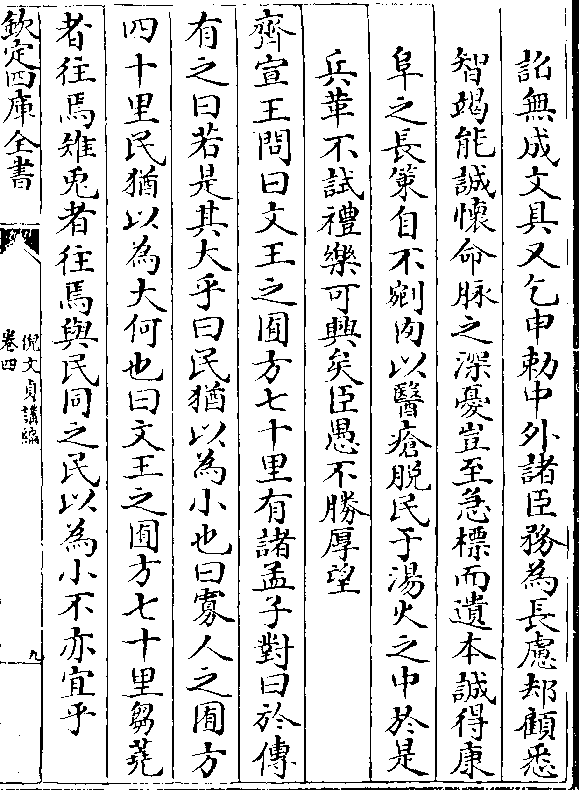 詔無成文具又乞申勅中外諸臣務為長慮却顧悉
智竭能誠懷命脉之深憂豈至急標而遺本誠得康
阜之長策自不剜肉以醫瘡脱民于湯火之中於是
兵革不試禮樂可興矣臣愚不勝厚望
齊宣王問曰文王之囿方七十里有諸孟子對曰於傳
有之曰若是其大乎曰民猶以為小也曰寡人之囿方
四十里民猶以為大何也曰文王之囿方七十里芻蕘
者往焉雉兎者往焉與民同之民以為小不亦宜乎
欽定四庫全書
倪文貞講編
卷四
九